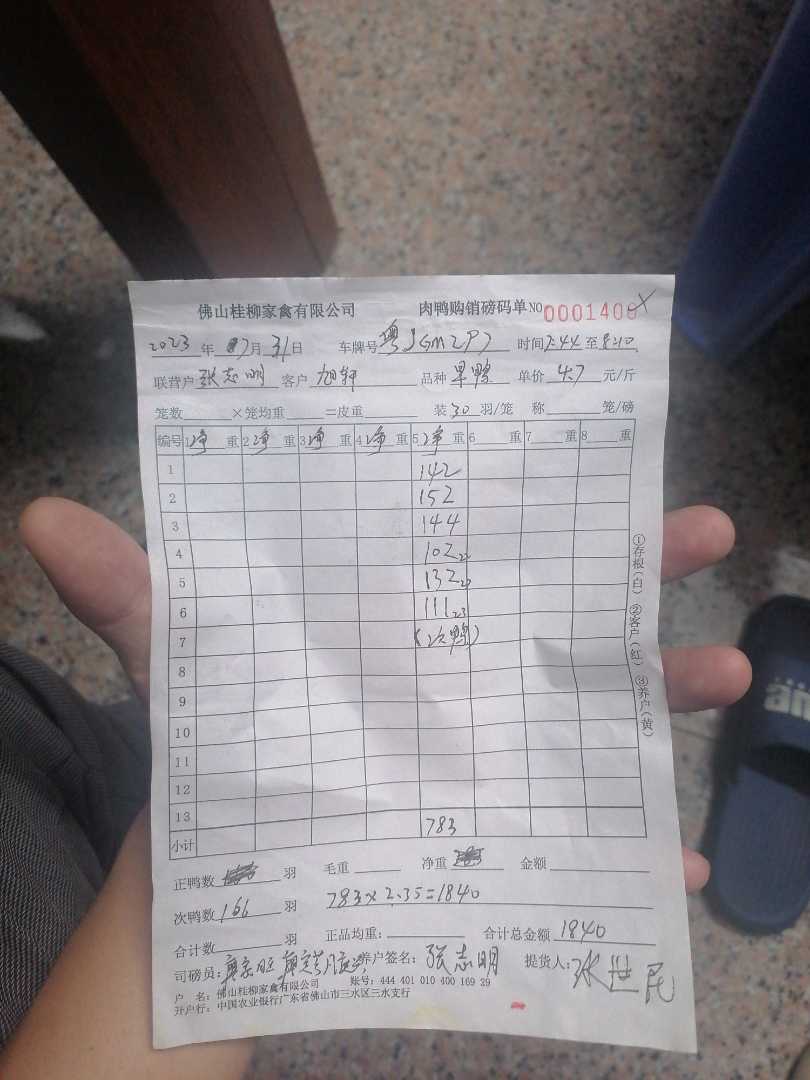 佛山桂柳家禽有限公司 肉鸭购销磅码单 NO 0001408
2023 年 07月 31日 车牌号 时间 7:44 至 8:10
联营户 张志明 客户 旭轩 品种 单价 4.7 元/斤
笼数 ×笼均重 =皮重 装 30 羽/笼 称 笼/磅
编号 1净重 2净重 3净重 4净重 5净重 6重 7重 8重
1 142
2 152
3 144
4 102 22
5 132
6 111 23
7 (次鸭)
8
9
10
11
12
13 783
小计
正鸭数 羽 毛重 净重 金额
次鸭数 166 羽 783×2.35=1840
合计数 羽 正品均重: 合计总金额 1840
司磅员: 养户签名: 张志明 提货人: 张世民
户 名: 佛山桂柳家禽有限公司 账号: 444 401 010 400 169 29
开户行: 中国农业银行广东省佛山市三水区三水支行
①存根(白) ②客户(红) ③养户(黄)